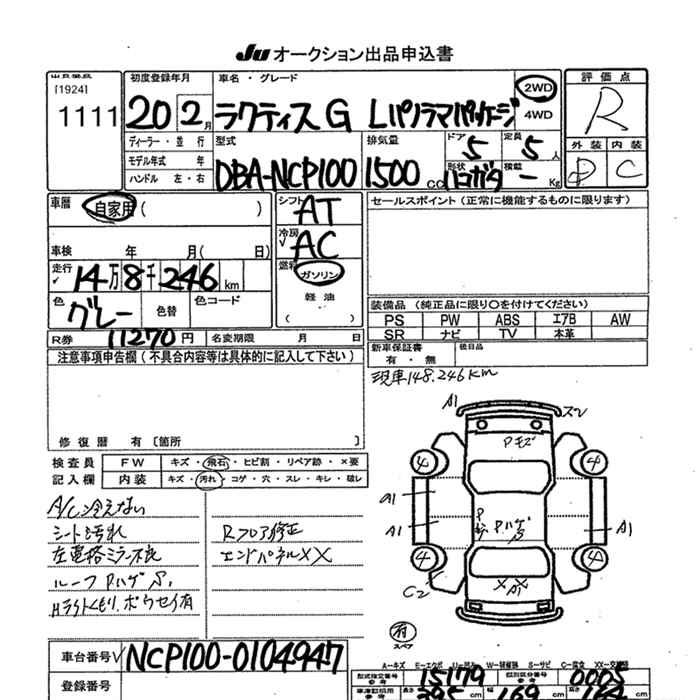 JU オークション出品申込書
出品番号
[1924]
1111
初度登録年月
20 2月
車名・グレード
ラクティス G Lパノラマパッケージ
2WD
4WD
評価点
R
ディーラー・並行
モデル年式 年
ハンドル 左・右
型式
DBA-NCP100
排気量
1500 cc
ドア
5
定員
5人
形状
ハコガタ
積載
- Kg
外装 内装
D C
車歴
自家用 ( )
車検 年 月( 日)
走行
✓ 14万8千246km
色
グレー
色替
色コード
シフト
AT
冷房
✓ AC
燃料
ガソリン
軽油
( )
セールスポイント(正常に機能するものに限ります)
装備品(純正品に限り○を付けてください)
PS PW ABS エアB AW
SR ナビ TV 本革
新車保証書
有・無
後日品
R券 11270円 名変期限 月 日
注意事項申告欄(不具合内容等は具体的に記入して下さい)
修復歴 有〔箇所 〕
現車148,246km
検査員
記入欄
FW キズ・飛石・ヒビ割・リペア跡・×要
内装 キズ・汚れ・コゲ・穴・スレ・キレ・破レ
A/C冷えない
シート汚れ
左電格ミラー不良
ルーフPハゲS,
Hライトくもり、ボウセイ有
Rフロア修正
エンドパネルXX
A1
ズレ
Pモズ
4
4
a1
A1
PハゲS
A1
4
4
C2
XA1X
有
スペア
A-キズ E-エクボ U-凹み W-補修跡 S-サビ C-腐食 XX-交換済
車台番号✓ NCP100-0104947
登録番号
型式指定番号
参考
15179
類別区分番号
参考
0005
車庫証明用
参考
長さ
395cm
幅
169cm
高さ
cm